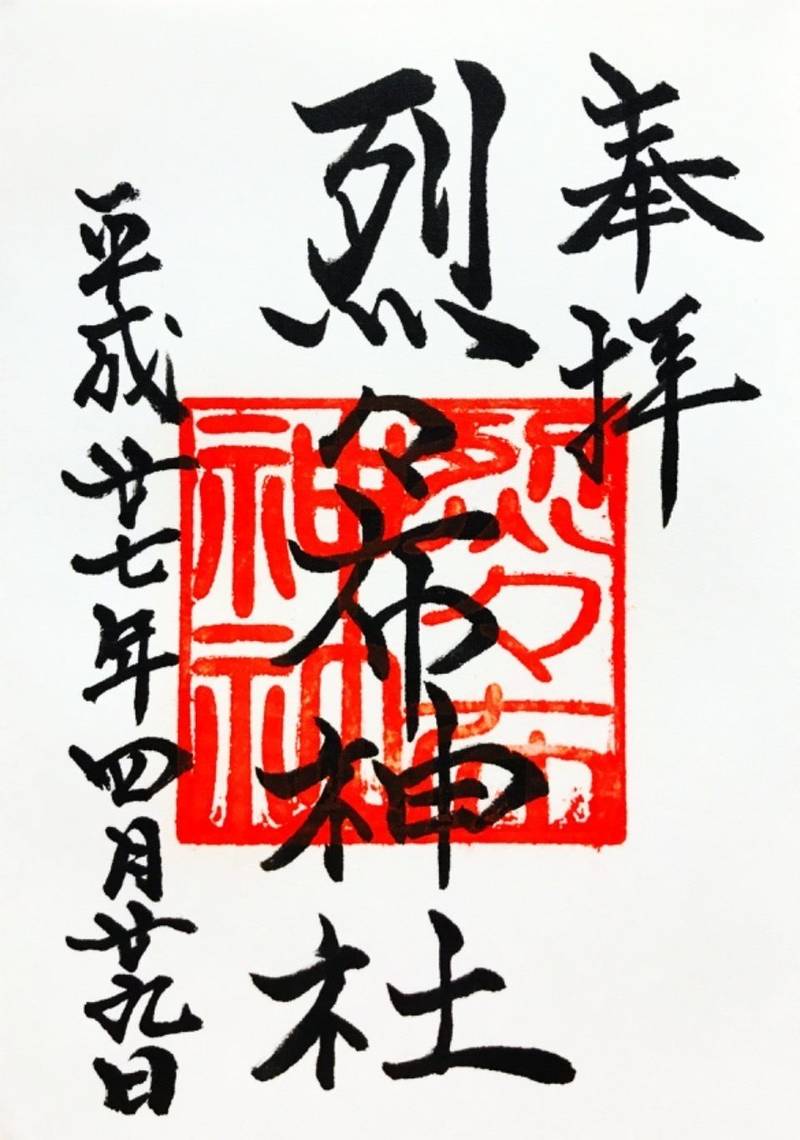 奉拝
烈々布神社
平成廿七年四月廿九日
烈々布
神社